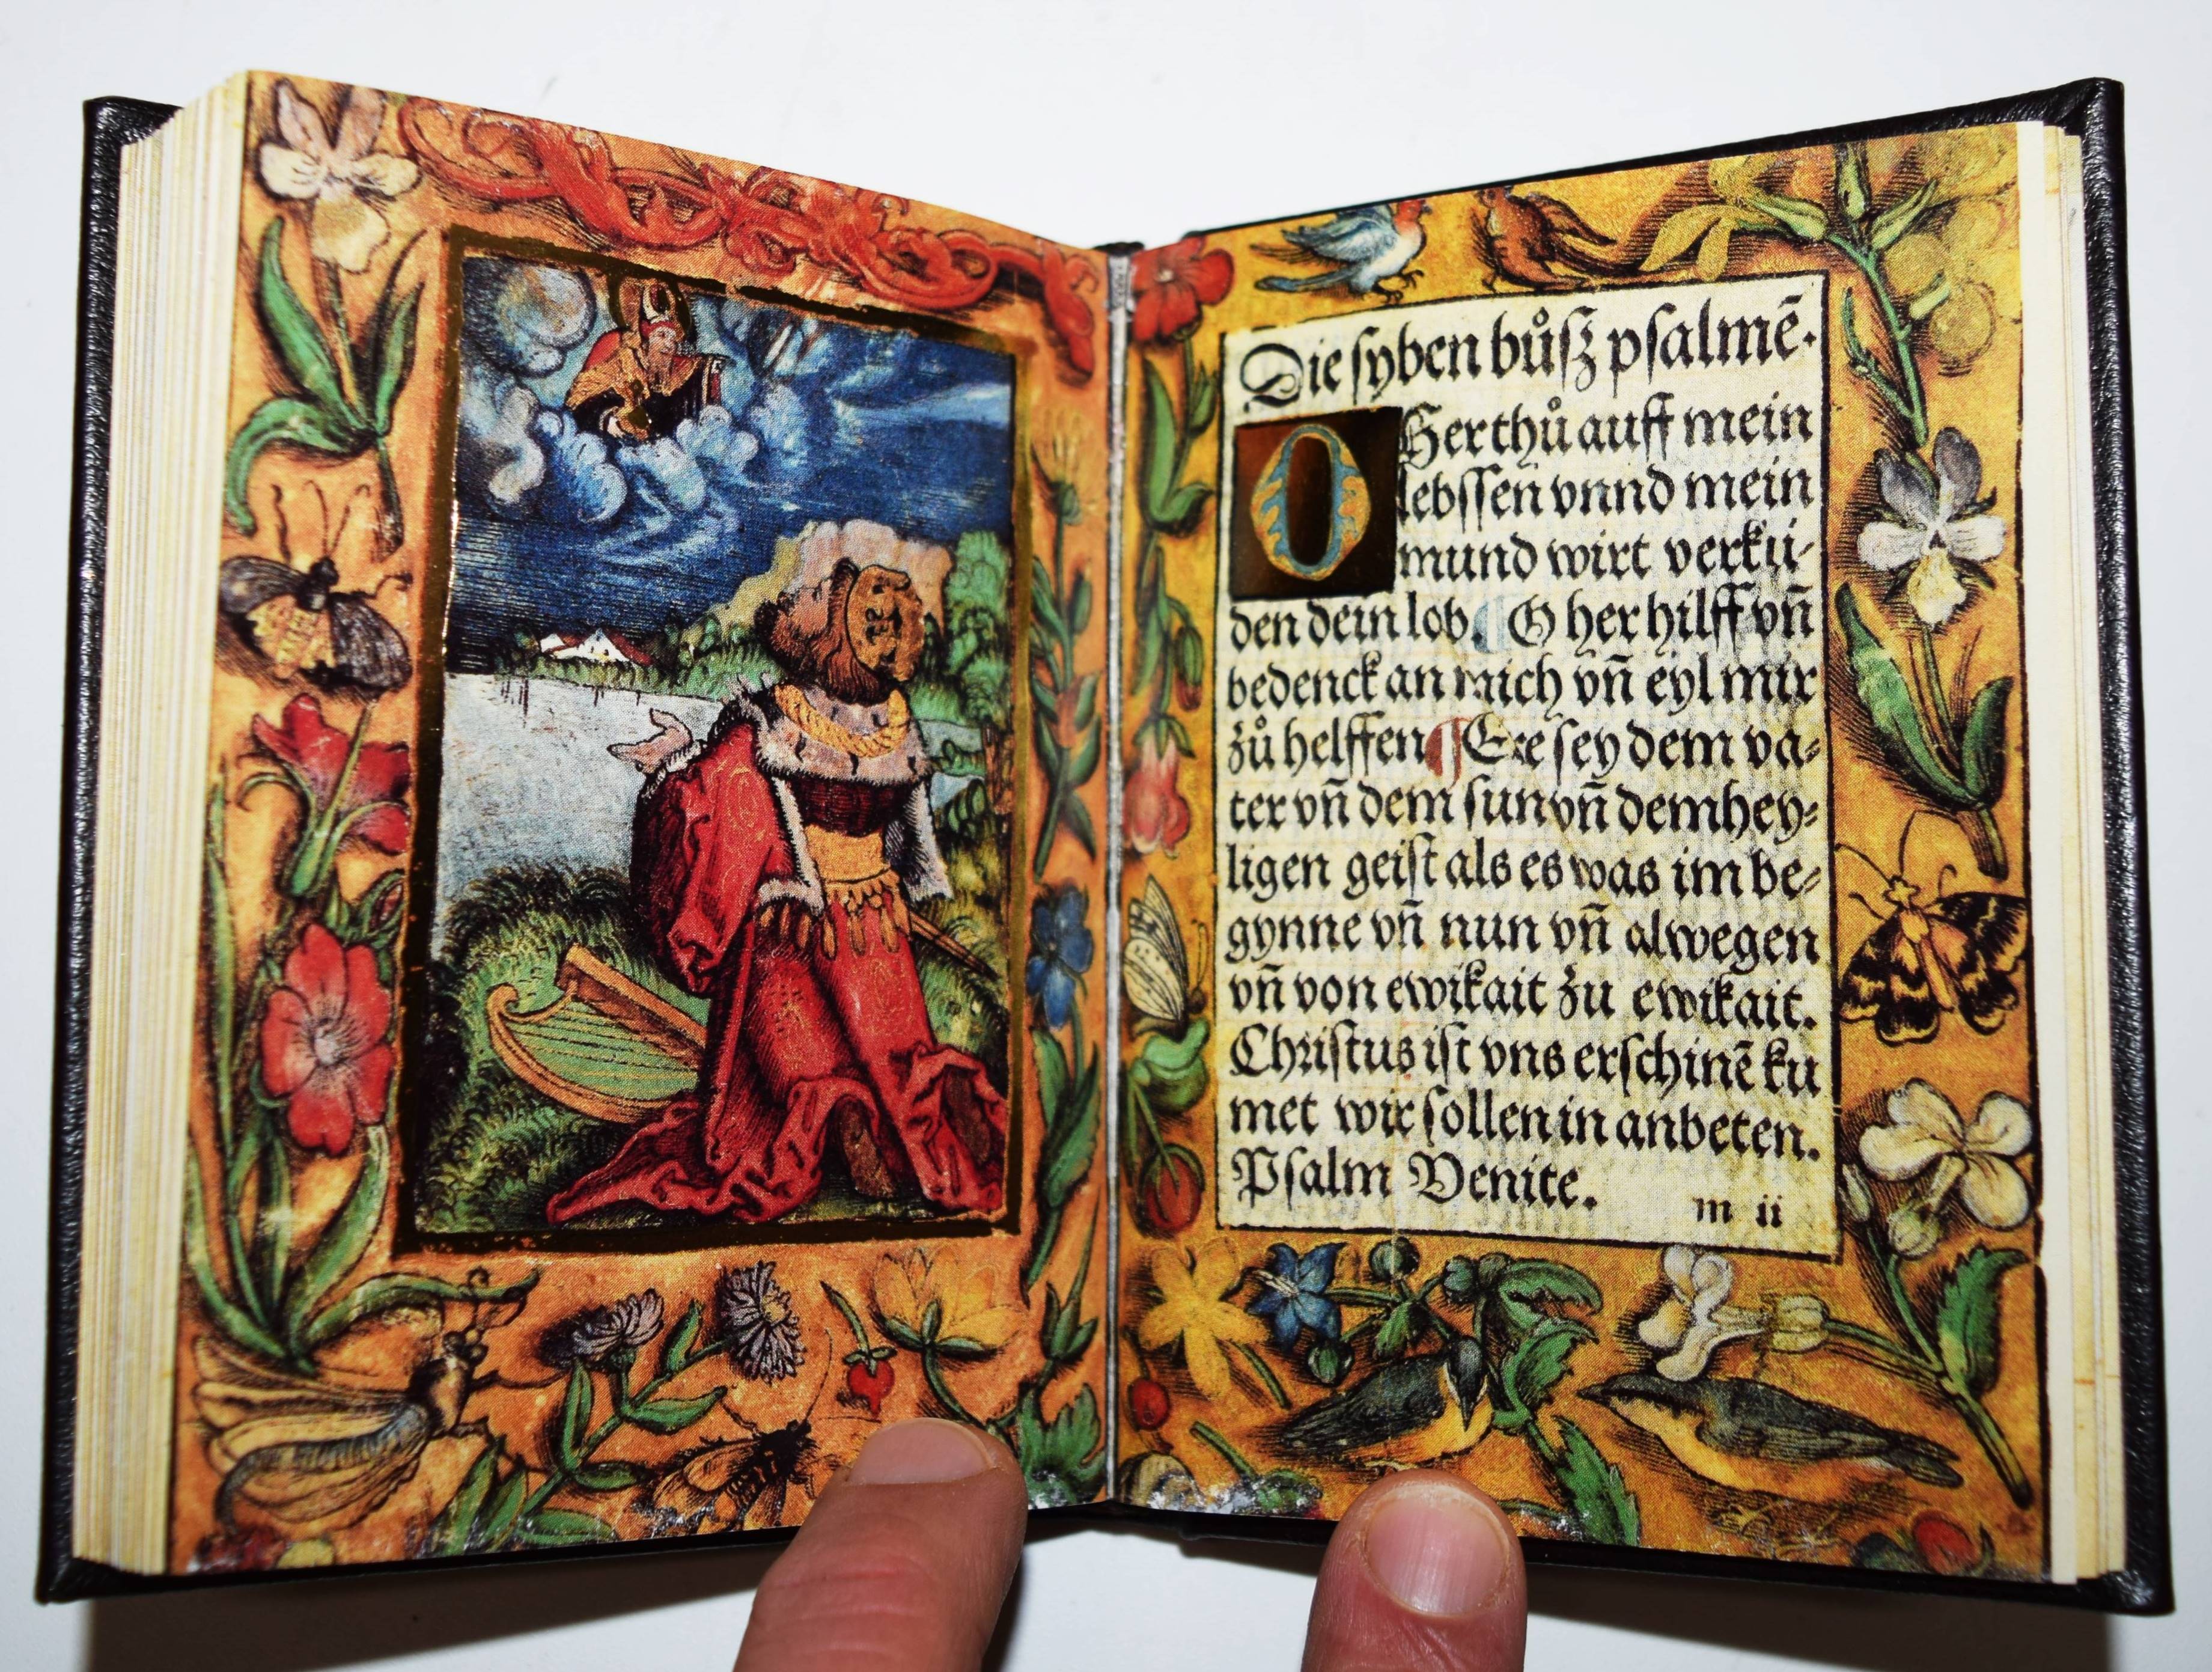 Die syben bůſz pſalmē.
O Her thů auff mein
lebſſen vnnd mein
mund wirt verkü-
den dein lob. ¶ O her hilff vñ
bedenck an mich vñ eyl mir
zů helffen ¶ Ere ſey dem va-
ter vñ dem ſun vñ dem hey-
ligen geiſt als es was im be-
gynne vñ nun vñ alwegen
vñ von ewikait zu ewikait.
Chriſtus iſt vns erſchinē ku
met wir ſollen in anbeten.
Pſalm Venite.
m ii